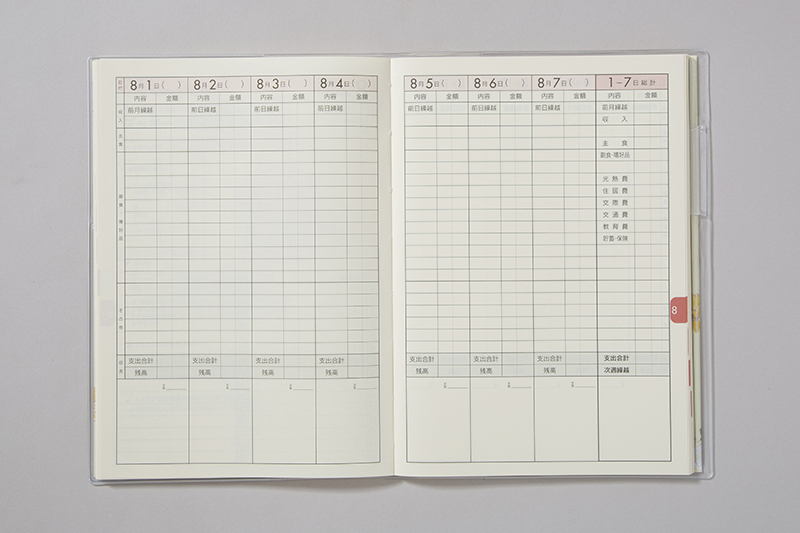 日付 8月1日( ) 8月2日( ) 8月3日( ) 8月4日( )
内容 金額 内容 金額 内容 金額 内容 金額
収入 前月繰越 前日繰越 前日繰越 前日繰越
主食
副食・嗜好品
その他
支出合計 支出合計 支出合計 支出合計
残高 残高 残高 残高
8月5日( ) 8月6日( ) 8月7日( ) 1~7日総計
内容 金額 内容 金額 内容 金額 内容 金額
前日繰越 前日繰越 前日繰越 前月繰越
収入
主食
副食・嗜好品
光熱費
住居費
交際費
交通費
教育費
貯蓄・保険
8
支出合計 支出合計 支出合計 支出合計
残高 残高 残高 次週繰越